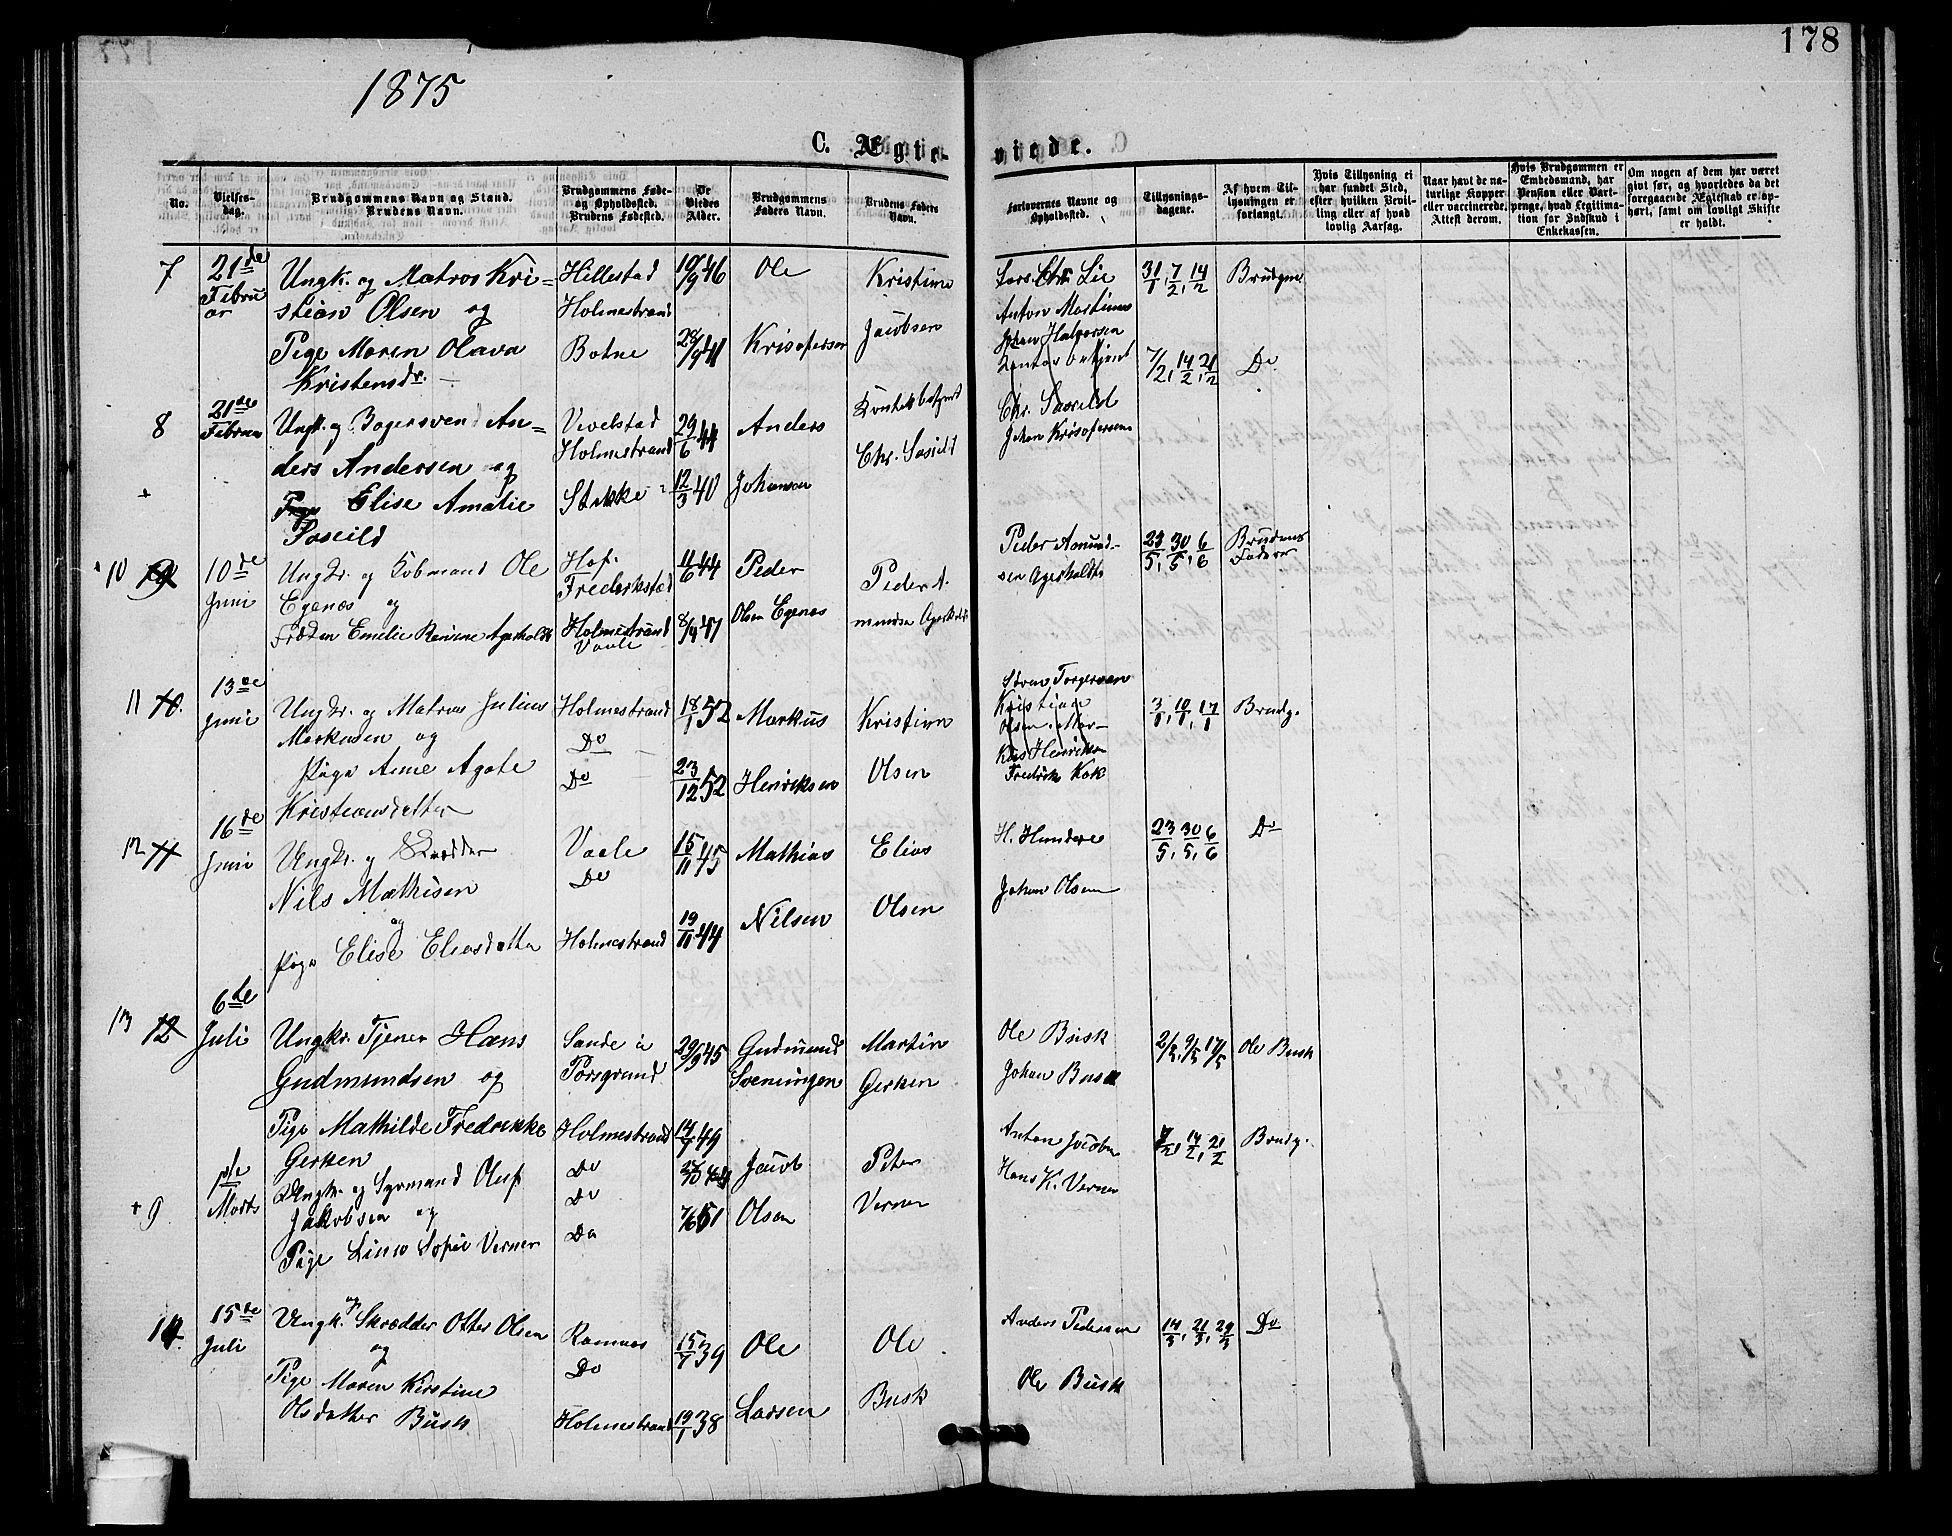 178
1875
C. Ægte-viede.
No.
Vielses-dag.
Brudgommens Navn og Stand. Brudens Navn.
Brudgommens Føde- og Opholdssted. Brudens Fødested.
De Viedes Alder.
Brudgommens Faders Navn.
Brudens Faders Navn.
Forlovernes Navne og Opholdssted.
Tillysnings-dagene.
Af hvem Til-lysningen er forlangt.
Hvis Tillysning ei har fundet Sted, efter hvilken Bevil-ling eller af hvad lovlig Aarsag.
Naar havt de na-turlige Kopper eller vaccinerede, Attest derom.
Hvis Brudgommen er Embedsmand, har Pension eller Vart-penge, hvad Legitima-tion for Indskud i Enkekassen.
Om nogen af dem har været givt før, og hvorledes da det foregaaende Ægteskab er op-hørt, samt om lovligt Skifte er holdt.
7
21de Februar
Ungk. og Matros Kri=
stian Olsen og
Pige Maren Olava
Kristensdr.
Hillestad
Holmestrand
Botne
10/9 46
28/9 41
Ole
Kristofersen
Kristian
Jacobsen
Lars Chr. Lie
Anton Martinus
Johan Halvorsen
31/1, 7/2, 14/2
Brudgm
8
21de
Ungk. og Bagersvend An=
ders Andersen og
Elise Amalie
Holmestrand
Stokke
29/6 44
12/3 40
Anders
Johansen
Kontorbetjent
Chr.
Johan Kristofersen
7/2, 14/2, 21/2
Do
10
10de Juni
Ungkr. og Kobmand Ole
Egenæs og
Frøken Emilie Ravine Agerholdt
Hof.
Frederikstad
Holmestrand
Vaale
11/6 44
8/9 47
Peder
Olsen Egenæs
Peder A.
mundsen Agerholdt
Peder Amund-
sen Agerholdt
23/5, 30/5, 6/6
Brudens Fader
11 10.
13de Juni
Ungkr. og Matros Julius
Markusen og
Pige Anne Agate
Kristiansdatter
Holmestrand
Do
Do
18/1 52
23/12 52
Markus
Henriksen
Kristian
Olsen
Søren Torgersen
Kristian
Olsen
Henriksen
Fredrik Kok
3/1, 10/1, 17/1
Brudg.
12 11
16de Juni
Ungkr. og Skrædder
Nils Mathisen
og
Pige Elise Eliasdatter
Vaale
Do
Holmestrand
15/11 45
19/11 44
Mathias
Nilsen
Elias
Olsen
H. Hundere
Johan Olsen
23/5, 30/5, 6/6
Do
13 12
6te Juli
Ungkr. Tjener Hans
Gudmundsen og
Pige Mathilde Fredrikke
Gerken
Sande i
Porsgrund
Holmestrand
29/9 45
14/7 49
Gudmund
Sveningen
Martin
Gerken
Ole Busk
Johan Busk
2/5, 9/5, 17/5
Ole Busk
+ 9.
1ste Marts
Ungkr. og Sømand Oluf
Jakobsen og
Pige Lina Sofie Verner
Do
Do
Do
7/6 51
Jacob
Olsen
Peter
Verner
Anton Jacobsen
Hans K. Verner
7/2, 14/2, 21/2
Brudg.
14.
15de Juli
Ungk. og Skrædder Otter Olsen
og
Pige Maren Kirstine
Olsdatter Busk
Ramnæs
Do
Holmestrand
15/7 39
19/1 38
Ole
Larsen
Ole
Busk
Anders Pedersen
Ole Busk
14/3, 21/3, 29/3
Do